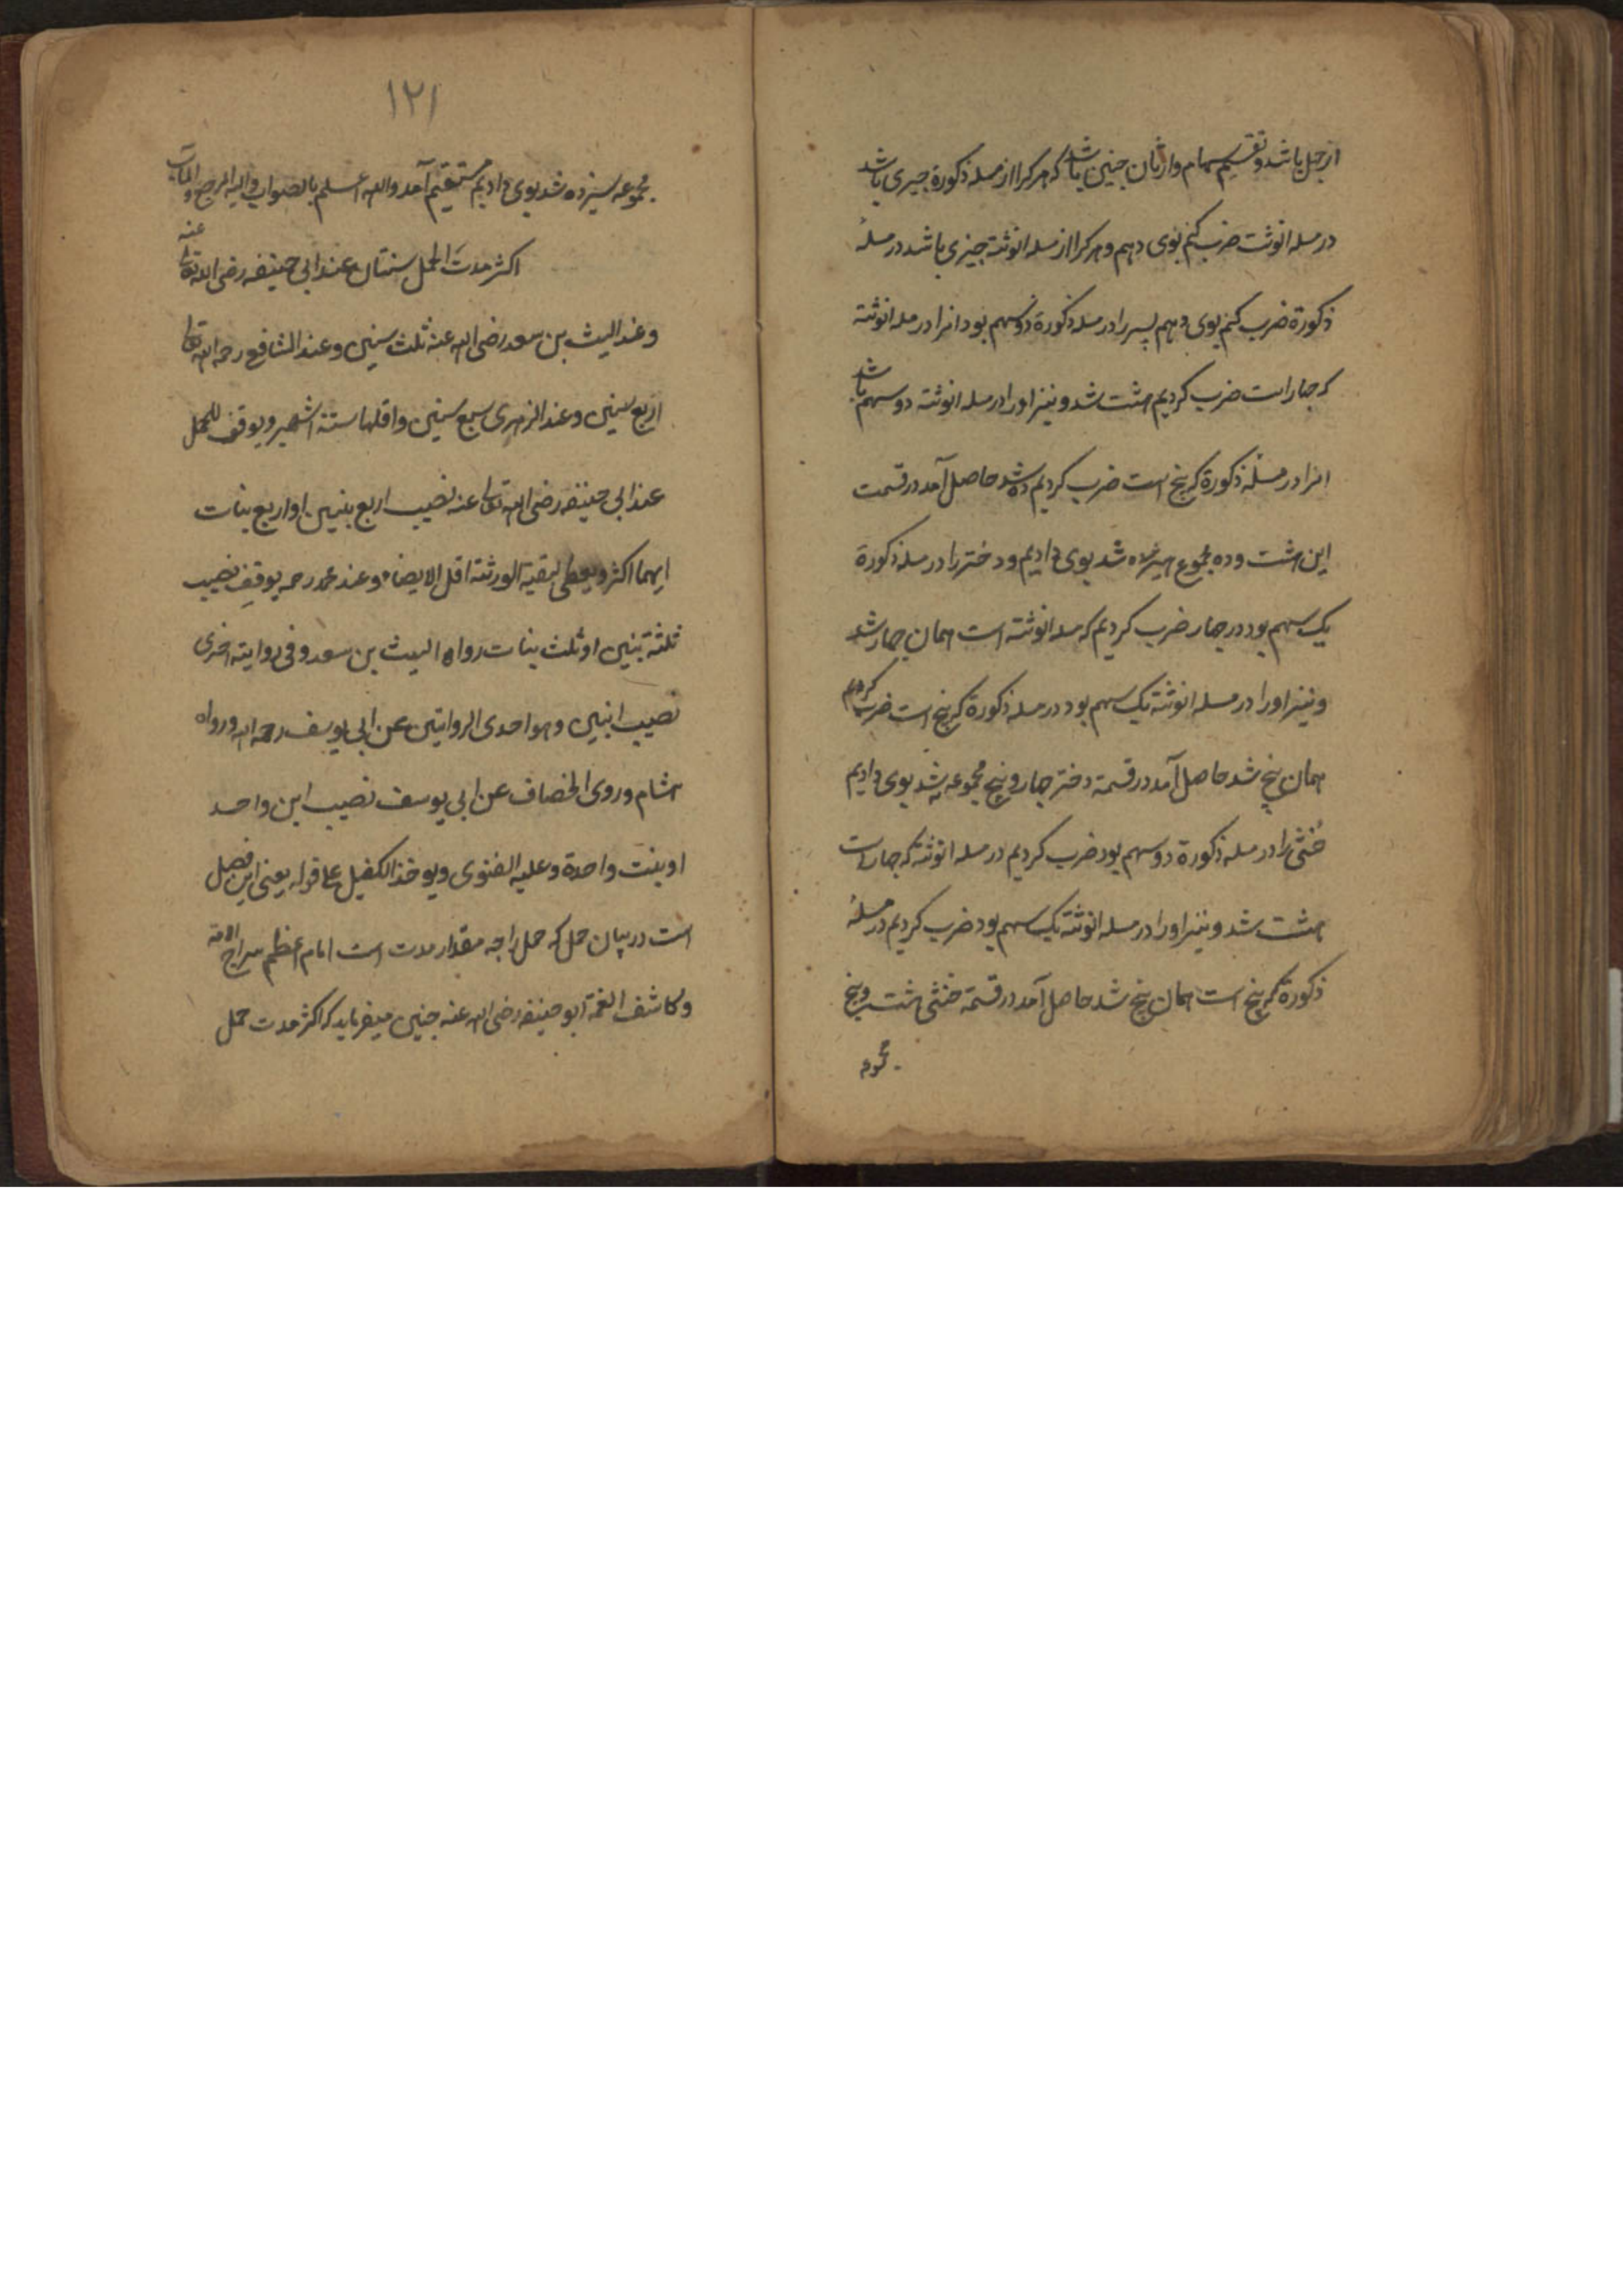 از چهل باشد و تقسیم سهام وارثان چنین باشد که هر کرا از مسله ذکورة چیزی باشد
در مسله انوثت ضرب کنم بوی دهم و هر کرا از مسله انوثته چیزی باشد در مسلهٔ
ذکورة ضرب کنم بوی دهم پسر را در مسله ذکورة دو سهم بود انرا در مسله انوثته
که چهار است ضرب کردیم هشت شد و نیز او را در مسله انوثته دو سهم باشد
انرا در مسئله ذکورة که پنج است ضرب کردیم ده شد حاصل آمد در قسمت
این هشت و ده مجموع هیژده شد بوی دادیم و دختر را در مسله ذکورة
یک سهم بود در چهار ضرب کردیم که مسله انوثته است همان چهار شد
و نیز او را در مسله انوثته یک سهم بود در مسله ذکورة که پنج است ضرب کردیم
همان پنج شد حاصل آمد در قسمة دختر چهار و پنج مجموعه نه شد بوی دادیم
خُنثی را در مسله ذکورة دو سهم بود ضرب کردیم در مسله انوثته که چهار است
هشت شد و نیز او را در مسله انوثته یک سهم بود ضرب کردیم در مسلهٔ
ذکورة که پنج است همان پنج شد حاصل آمد در قسمة خنثی هشت و پنج
مجموعه
۱۲۱
مجموعه سیزده شد بوی دادیم مستقیم آمد والله اعلم بالصواب والیه المرجع والمآب
اکثر مدت الحمل سنتان عند ابی حنیفه رضی الله تعالی عنه
وعند الیث بن سعد رضی الله عنه ثلث سنین وعند الشافع رحمه الله تعالی
اربع سنین وعند الزهری سبع سنین واقلها ستة اشهر ویوقف للحمل
عند ابی حنیفه رضی الله تعالی عنه نصیب اربع بنین او اربع بنات
ایهما اکثر ویعطی لبقیة الورثته اقل الانصباء وعند محمد رحمه یوقف نصیب
ثلثة بنین او ثلث بنات رواه الیث بن سعد وفی روایته اخری
نصیب ابنین وهو احدی الروایتین عن ابی یوسف رحمه الله ورواه
هشام وروی الخصاف عن ابی یوسف نصیب ابن واحد
او بنت واحدة وعلیه الفتوی ویوخذ الکفیل علی قوله یعنی این فصل
است در بیان حمل که حمل را چه مقدار مدت است امام اعظم سراج الامة
وکاشف الغمة ابو حنیفه رضی الله عنه چنین میفرماید که اکثر مدت حمل